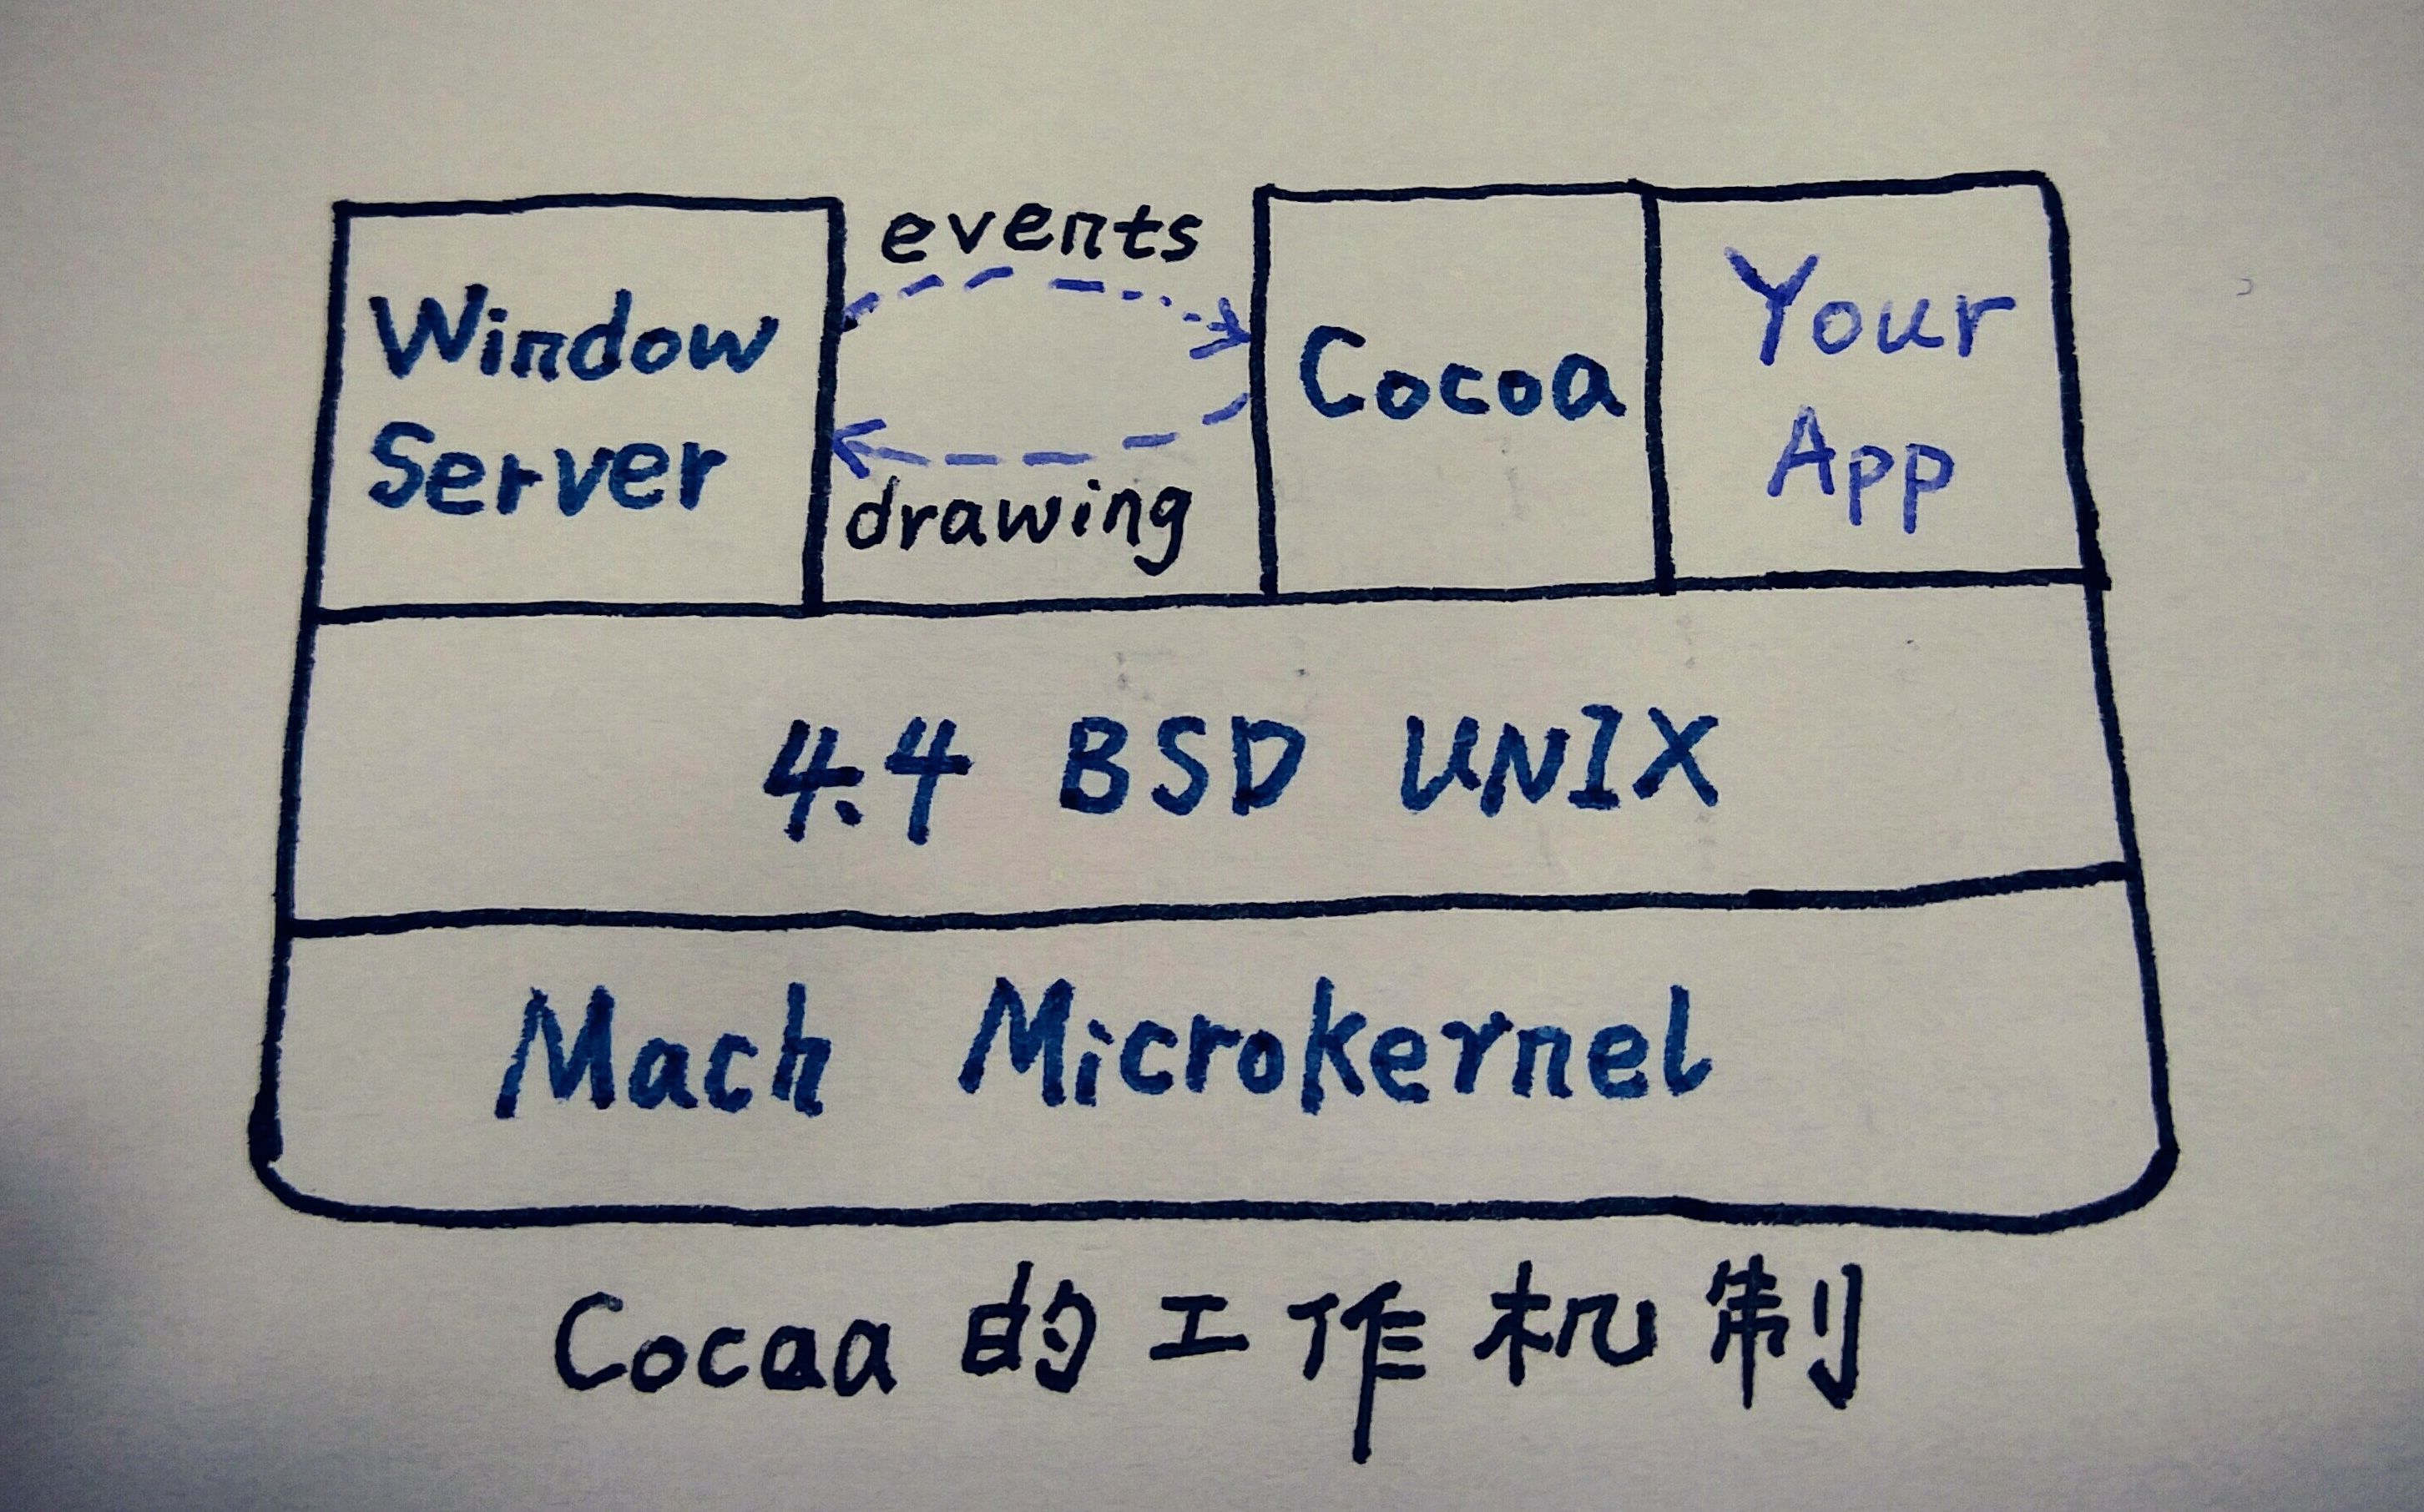 events
Window
Server
drawing
Cocoa
Your
App
4.4 BSD UNIX
Mach Microkernel
Cocaa 的工作机制